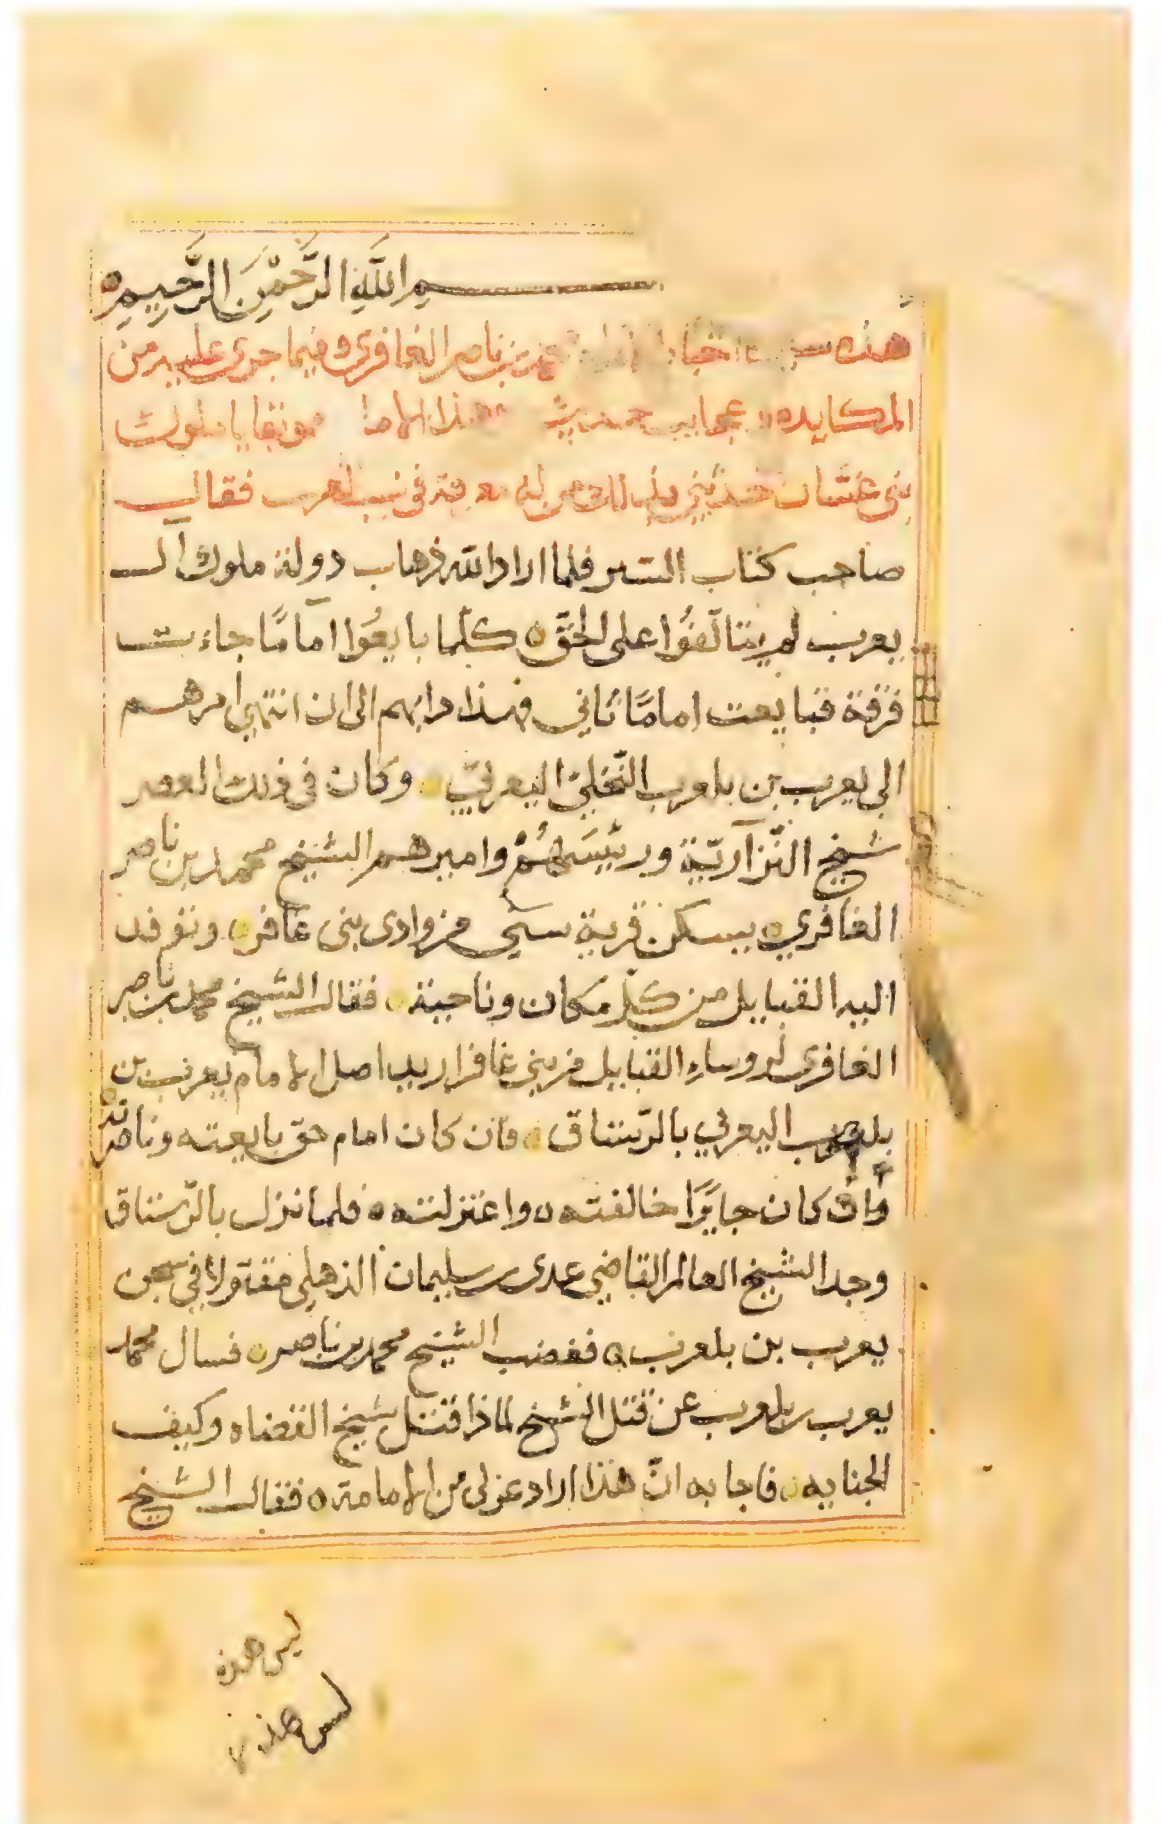 بسم الله الرَّحْمٰنِ الرَّحِيمِ
هذه سيرة بن ناصر الغافري وفيما جرى عليه من
المكايده هذا الاما يا ملوك
بني غسّان في نسب العرب فقال
صاحب كتاب السير فلما اراد الله ذهاب دولة ملوك آل
يعرب لم يتآلفُوا على الحقّ ه كلّما بايعُوا آمامًا جاءت
فرقة فبايعت امامًا ثاني فهذا دابهم الى ان انتهى امرهم
الى يعرب بن بلعرب النّخليّ اليعربيّ ه وكان في ذلك العصر
شيخ النّزآريّة ورئيسَهُمُ واميرهم الشيخ محمد بن ناصر
الغافري ه يسكن قرية سيحي من وادي بني غافر ه وتوفد
اليه القبايل من كلّ مكان وناحية ه فقال الشيخ محمد بن ناصر
الغافري لروساء القبايل من بني غافر اريد اصل الامام يعرب بن
بلعرب اليعربي بالرّستاق ه فان كان امام حق بايعته وناصرته
وان كان جايرًا خالفته ه واعتزلته ه فلما نزل بالرّستاق
وجد الشيخ العالم القاضي عدي بن سليمان الذهلي مقتولا في سجن
يعرب بن بلعرب ه فغضب الشيخ محمد بن ناصر ه فسال محمد
يعرب بن بلعرب عن قتل الشيخ لماذا قتل شيخ القضاه وكيف
الجنايه ه فاجابه انّ هذا اراد عزلي من الامامة ه فقال الشيخ
ليس هذه
ليس هذه